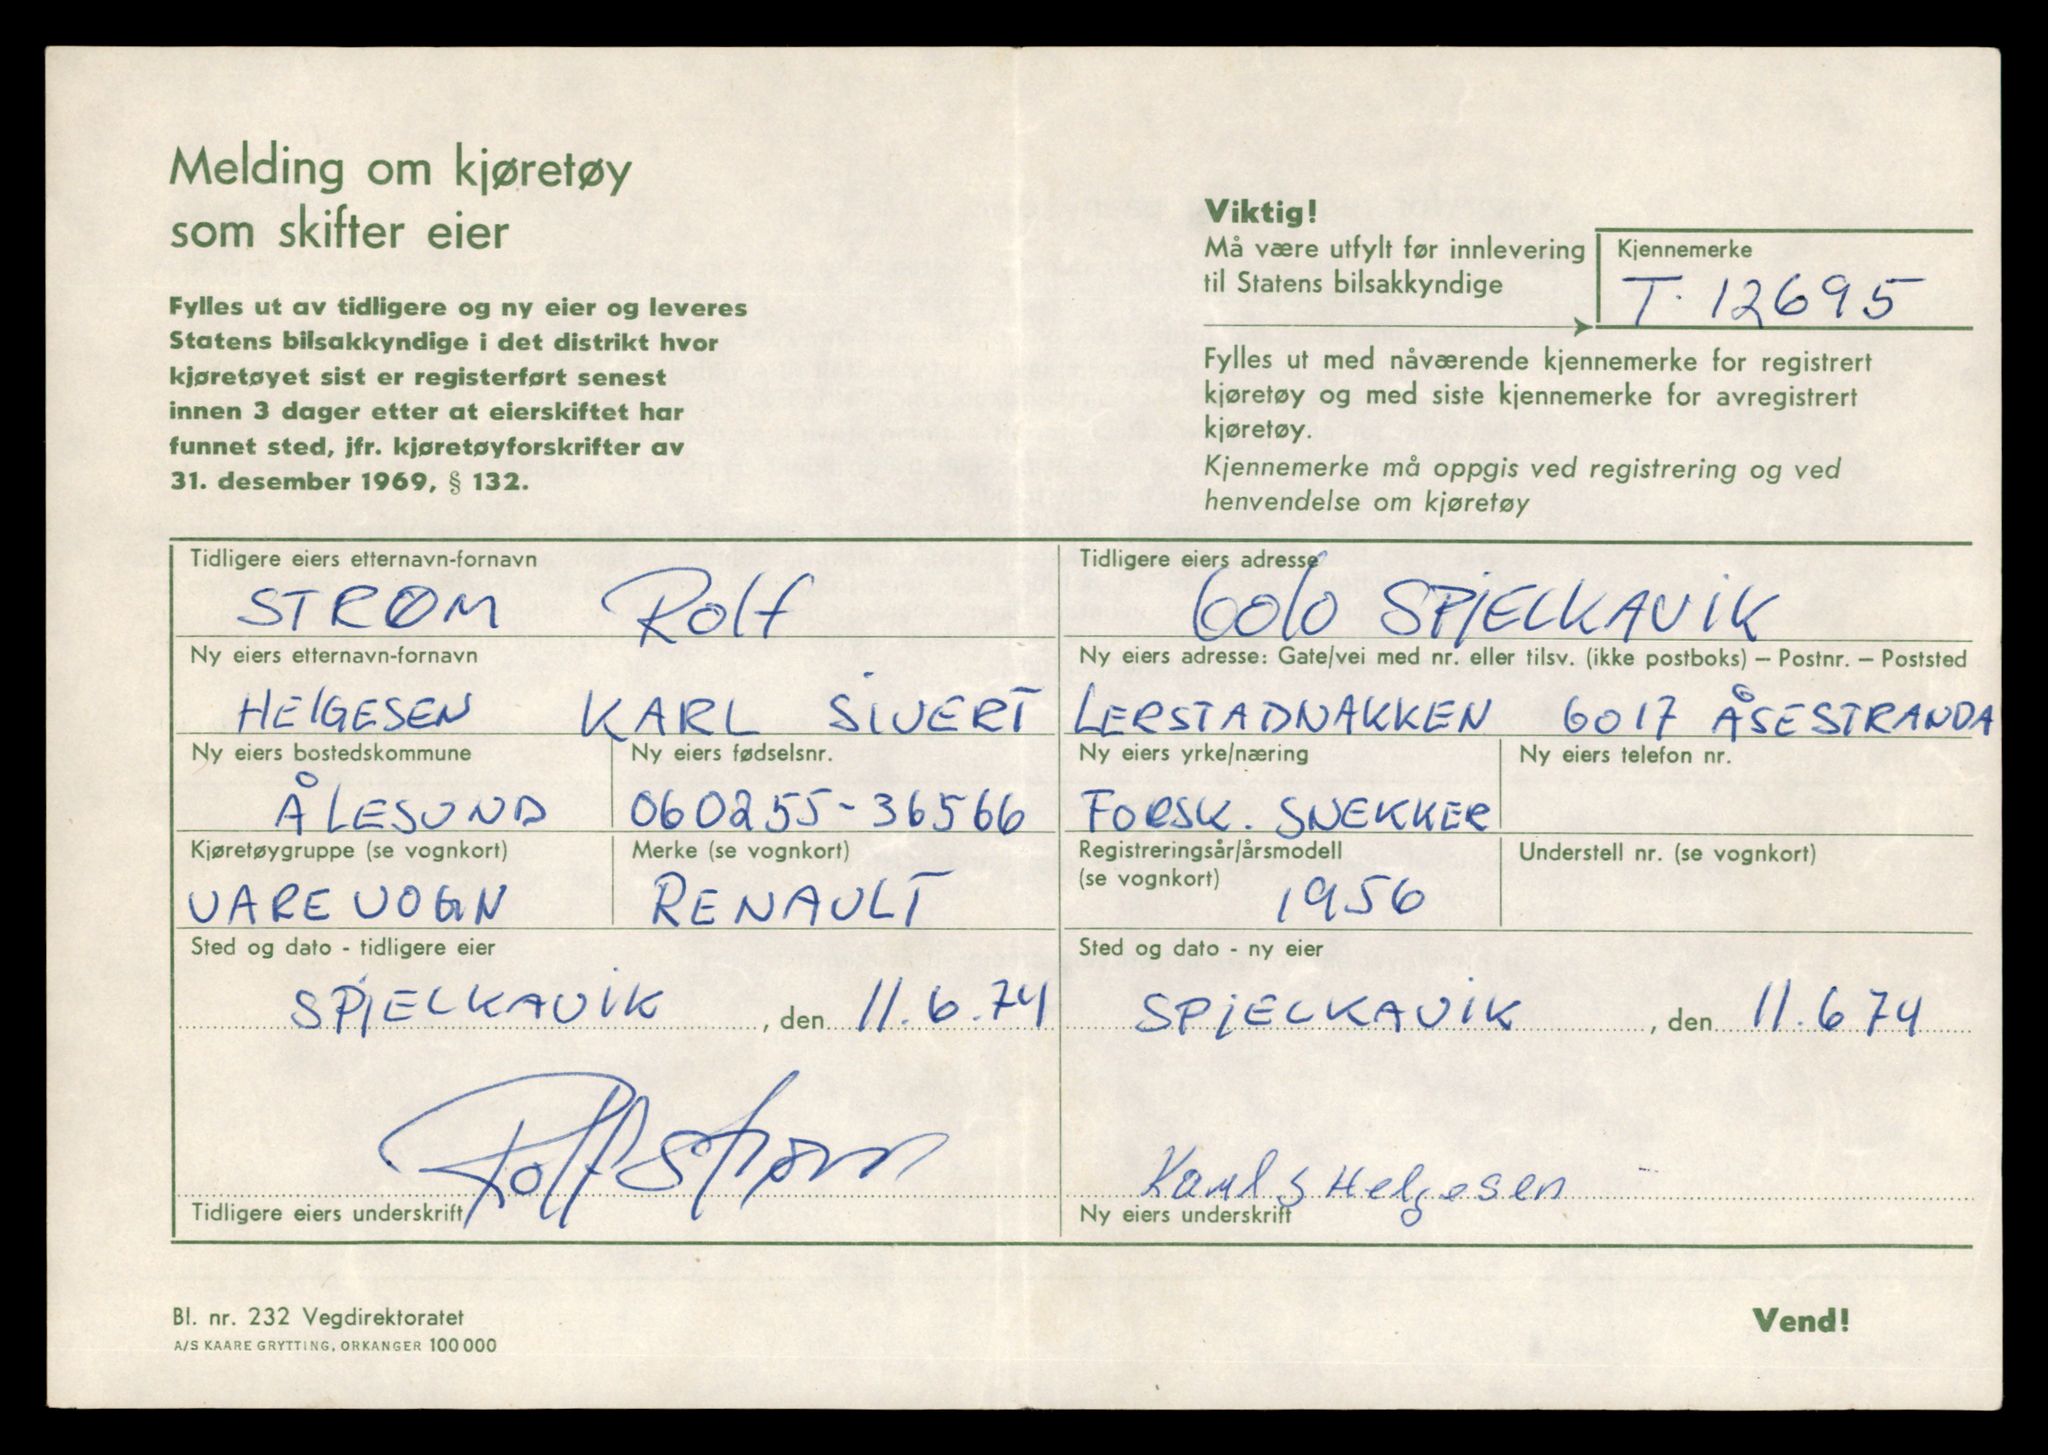 Melding om kjøretøy
som skifter eier
Fylles ut av tidligere og ny eier og leveres
Statens bilsakkyndige i det distrikt hvor
kjøretøyet sist er registerført senest
innen 3 dager etter at eierskiftet har
funnet sted, jfr. kjøretøyforskrifter av
31. desember 1969, § 132.
Viktig!
Må være utfylt før innlevering
til Statens bilsakkyndige
Kjennemerke
T. 12695
Fylles ut med nåværende kjennemerke for registrert
kjøretøy og med siste kjennemerke for avregistrert
kjøretøy.
Kjennemerke må oppgis ved registrering og ved
henvendelse om kjøretøy
Tidligere eiers etternavn-fornavn
STRØM Rolf
Tidligere eiers adresse
6010 SPJELKAVIK
Ny eiers etternavn-fornavn
HELGESEN KARL SIVERT
Ny eiers adresse: Gate/vei med nr. eller tilsv. (ikke postboks) – Postnr. – Poststed
LERSTADNAKKEN 6017 ÅSESTRANDA
Ny eiers bostedskommune
ÅLESUND
Ny eiers fødselsnr.
060255-36566
Ny eiers yrke/næring
FORSK. SNEKKER
Ny eiers telefon nr.
Kjøretøygruppe (se vognkort)
VAREVOGN
Merke (se vognkort)
RENAULT
Registreringsår/årsmodell
(se vognkort)
1956
Understell nr. (se vognkort)
Sted og dato - tidligere eier
SPJELKAVIK, den 11.6.74
Sted og dato - ny eier
SPJELKAVIK, den 11.6 74
Rolf Strøm
Tidligere eiers underskrift
Karl S Helgesen
Ny eiers underskrift
Bl. nr. 232 Vegdirektoratet
A/S KAARE GRYTTING, ORKANGER 100 000
Vend!